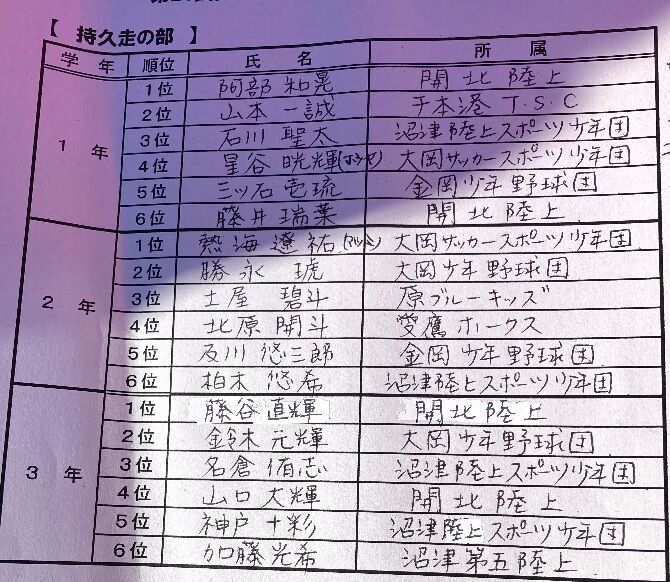 【 持久走の部 】
学 年 順位 氏 名 所 属
1 年
1位 阿部 和晃 開北陸上
2位 山本 一誠 千本港 T.S.C
3位 石川 聖太 沼津陸上スポーツ少年団
4位 星谷 晄輝 大岡サッカースポーツ少年団
5位 三ツ石 壱琉 金岡少年野球団
6位 藤井 瑞葉 開北陸上
2 年
1位 熱海 遼祐 大岡サッカースポーツ少年団
2位 勝永 琥 大岡少年野球団
3位 土屋 碧斗 原ブルーキッズ
4位 北原 開斗 愛鷹ホークス
5位 及川 悠三郎 金岡少年野球団
6位 柏木 悠希 沼津陸上スポーツ少年団
3 年
1位 藤谷 直輝 開北陸上
2位 鈴木 元輝 大岡少年野球団
3位 名倉 侑志 沼津陸上スポーツ少年団
4位 山口 大輝 開北陸上
5位 神戸 十彩 沼津陸上スポーツ少年団
6位 加藤 光希 沼津第五陸上